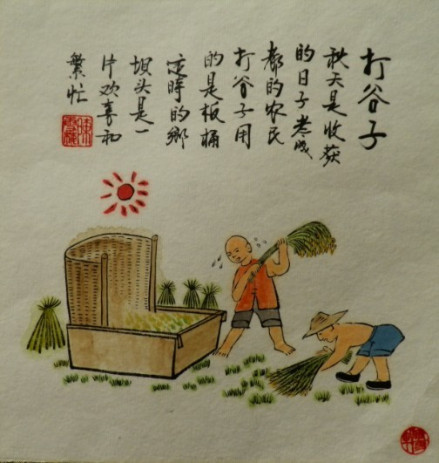 打谷子
秋天是收获
的日子老成
都的农民
打谷子用
的是板桶
这時的鄉
坝头是一
片欢喜和
繁忙